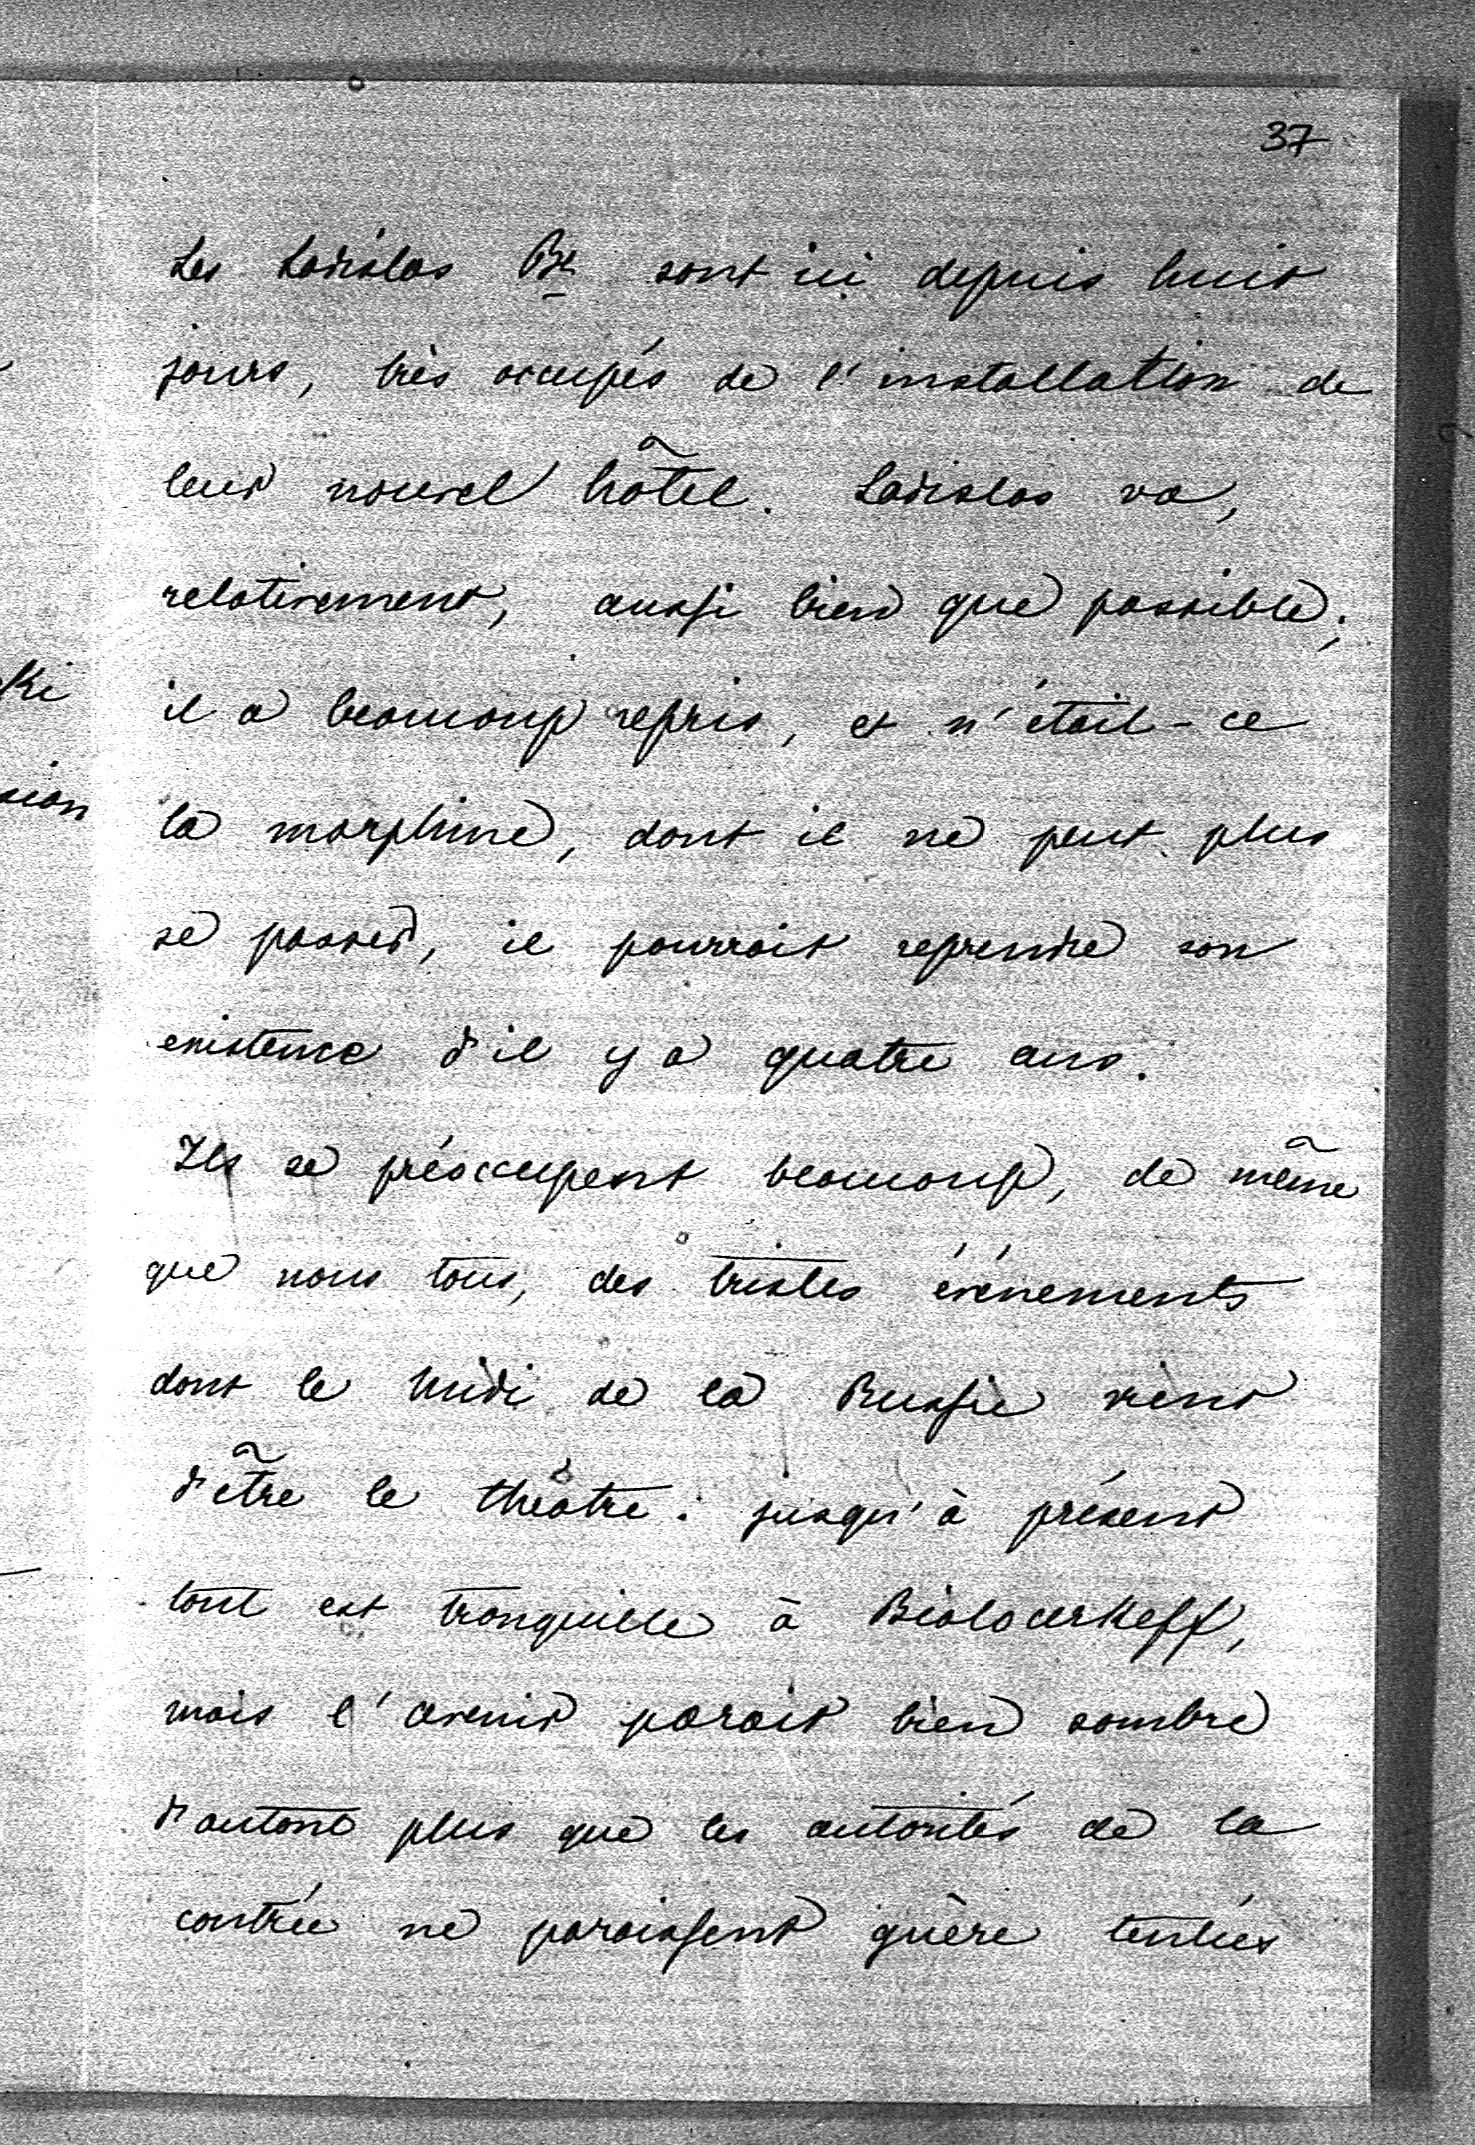 37
Les Ladislas Bki sont ici depuis huit
jours, très occupés de l'installation de
leur nouvel hôtel. Ladislas va,
relativement, aussi bien que possible;
il a beaucoup repris, et n'était-ce
la morphine, dont il ne peut plus
se passer, il pourrait reprendre son
existence d'il y a quatre ans.
Ils se préoccupent beaucoup, de même
que nous tous, des tristes événements
dont le midi de la Russie vient
d'être le théâtre: jusqu'à présent
tout est tranquille à Bialocerkeff,
mais l'avenir parait bien sombre
d'autant plus que les autorités de la
contrée ne paraissent guère tentées